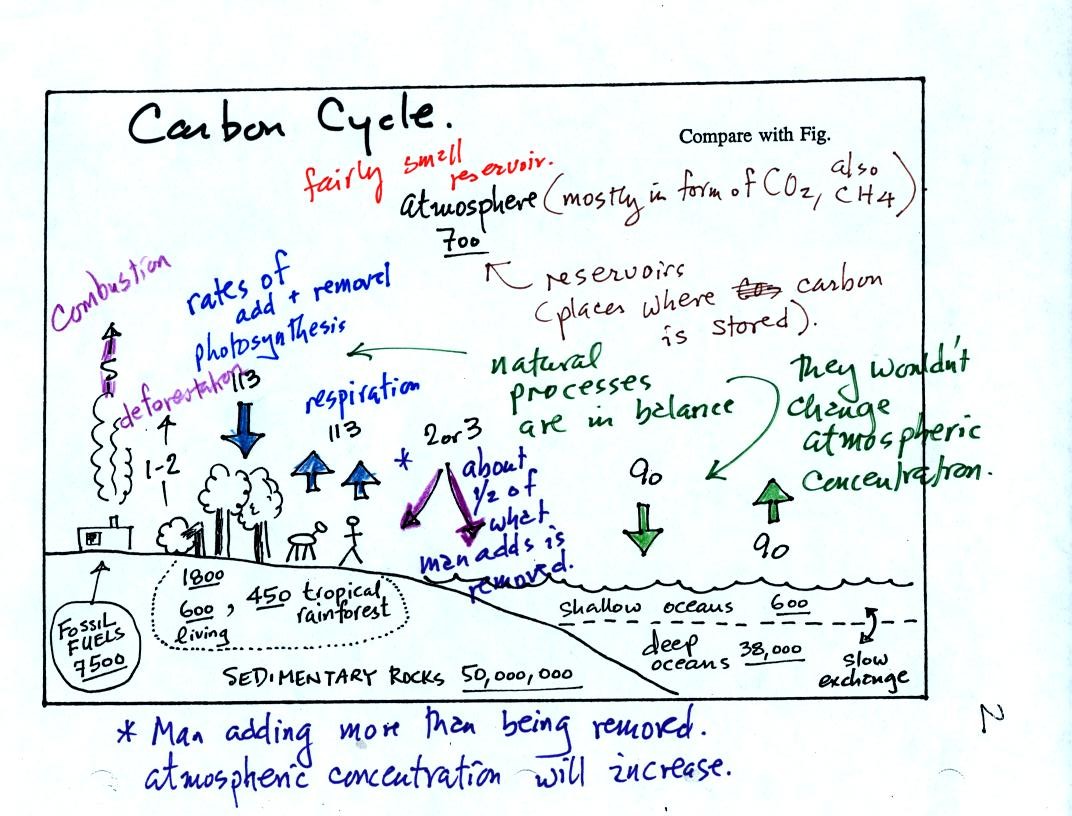 Carbon Cycle.
Compare with Fig.
fairly small
reservoir.
atmosphere (mostly in form of CO2, also CH4)
700
reservoirs
(places where carbon
is stored).
Combustion
5
deforestation
1-2
rates of
add + removel
photosynthesis
113
respiration
113
natural
processes
are in balance
They wouldn't
change
atmospheric
concentration.
* 2 or 3
about
1/2 of
what
man adds is
removed.
90
90
FOSSIL
FUELS
7500
1800
600, 450 tropical
rainforest
living
SEDIMENTARY ROCKS 50,000,000
shallow oceans 600
deep
oceans 38,000
slow
exchange
* Man adding more than being removed.
atmospheric concentration will increase.